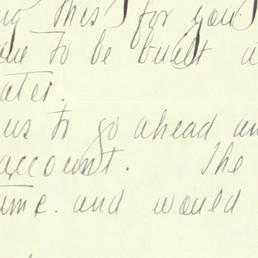 ng this for you
to be built a
ater.
us to go ahead an
account. The
time. and would